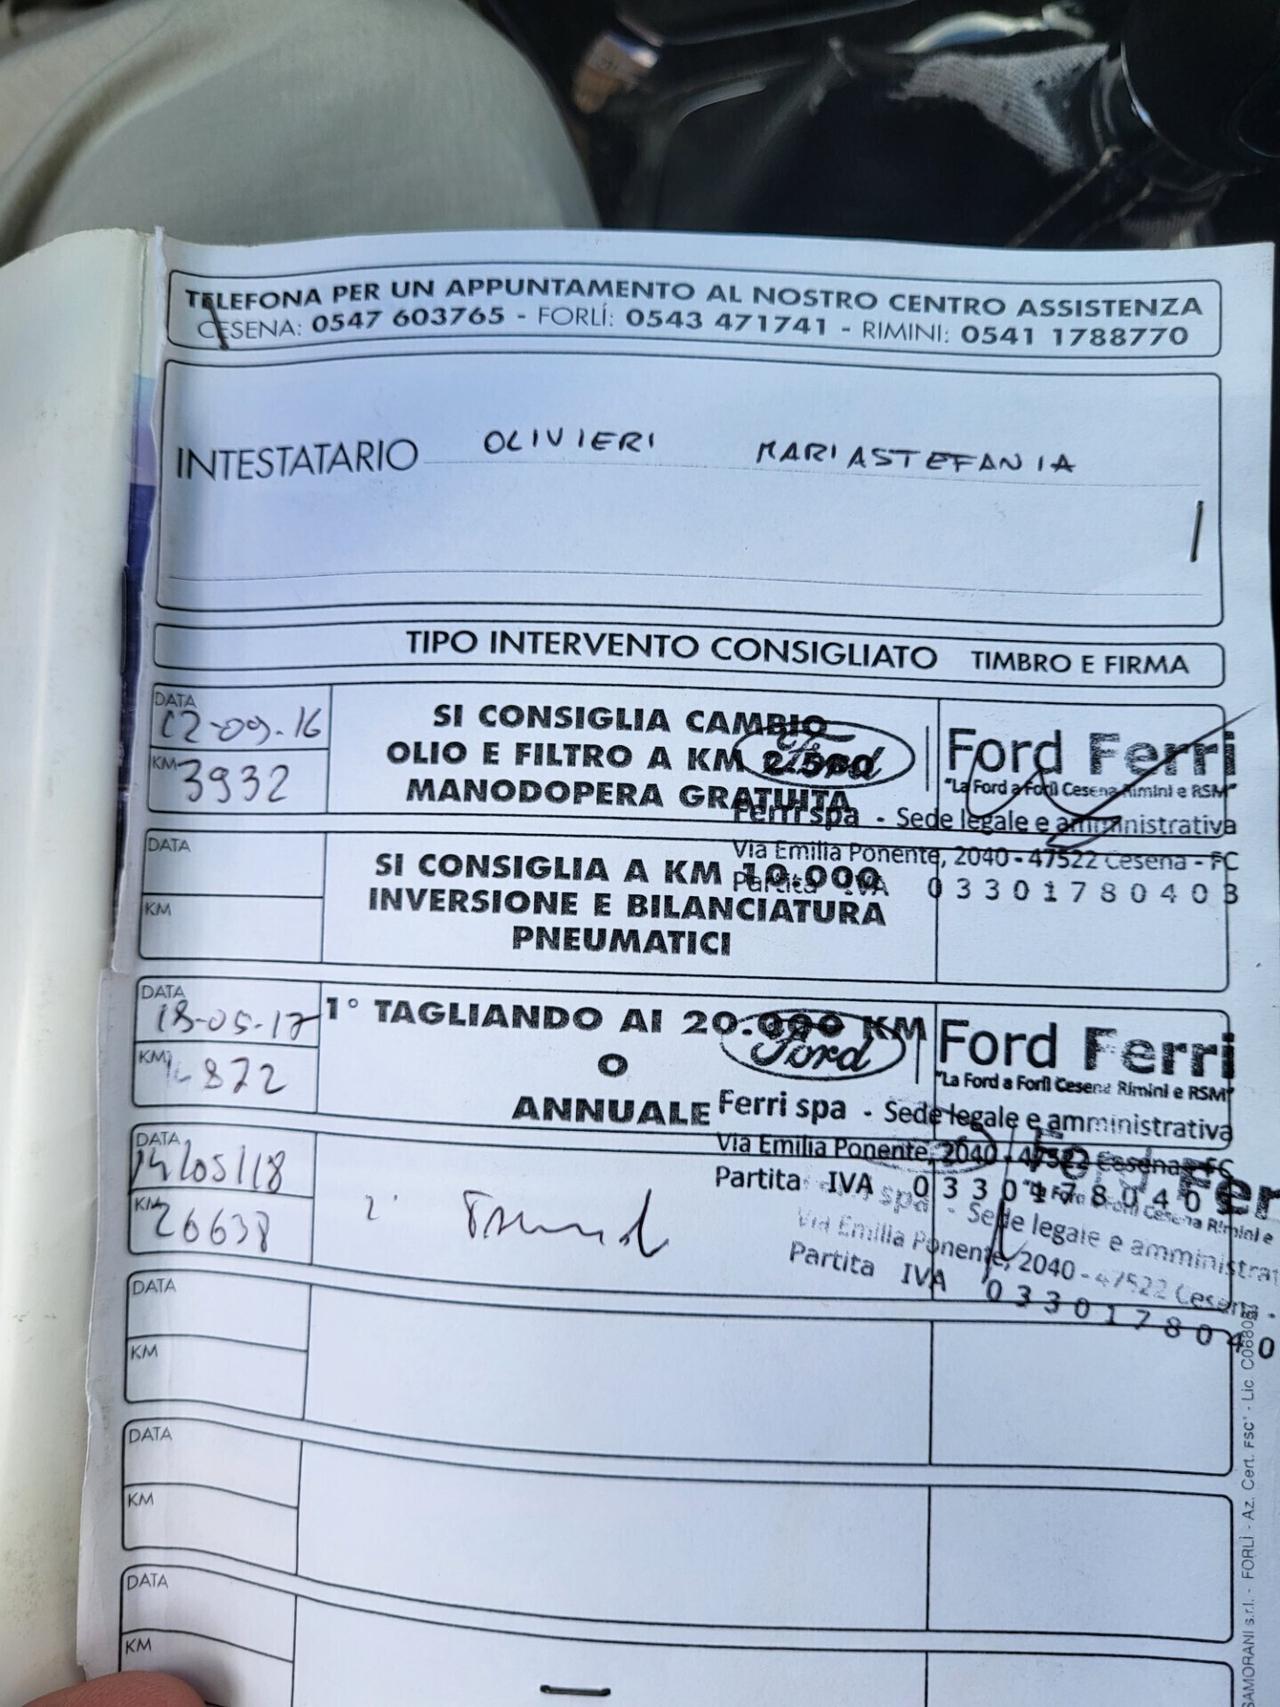 TELEFONA PER UN APPUNTAMENTO AL NOSTRO CENTRO ASSISTENZA
CESENA: 0547 603765 - FORLÌ: 0543 471741 - RIMINI: 0541 1788770
INTESTATARIO OLIVIERI MARIASTEFANIA
TIPO INTERVENTO CONSIGLIATO TIMBRO E FIRMA
DATA
12-09-16
KM 3932
SI CONSIGLIA CAMBIO
OLIO E FILTRO A KM 2.500
MANODOPERA GRATUITA
Ford Ford Ferri
"La Ford a Forlì Cesena Rimini e RSM"
Ferri spa - Sede legale e amministrativa
Via Emilia Ponente, 2040 - 47522 Cesena - FC
Partita IVA 03301780403
DATA
KM
SI CONSIGLIA A KM 10.000
INVERSIONE E BILANCIATURA
PNEUMATICI
DATA
18-05-17
KM 872
1° TAGLIANDO AI 20.000 KM
O
ANNUALE
Ford Ford Ferri
"La Ford a Forlì Cesena Rimini e RSM"
Ferri spa - Sede legale e amministrativa
Via Emilia Ponente, 2040 - 47522 Cesena - FC
Partita IVA 0330178040
DATA
14/05/18
KM 26638
2°
Ford Fer
Forlì Cesena Rimini e
spa - Sede legale e amministrat
Via Emilia Ponente, 2040 - 47522 Cesena -
Partita IVA 0330178040
DATA
KM
DATA
KM
DATA
KM
SAMORANI s.r.l. - FORLÌ - Az. Cert. FSC® - Lic.